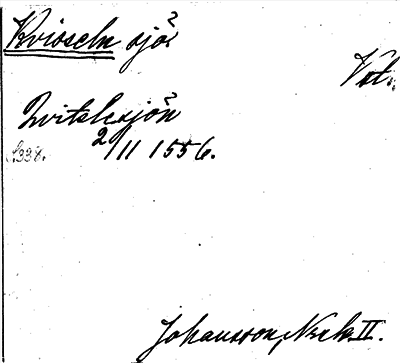 Kvioseln sjö
Vat.
Zvitslesjön
S. 338. 2/11 1556.
Johansson, Norb. II.